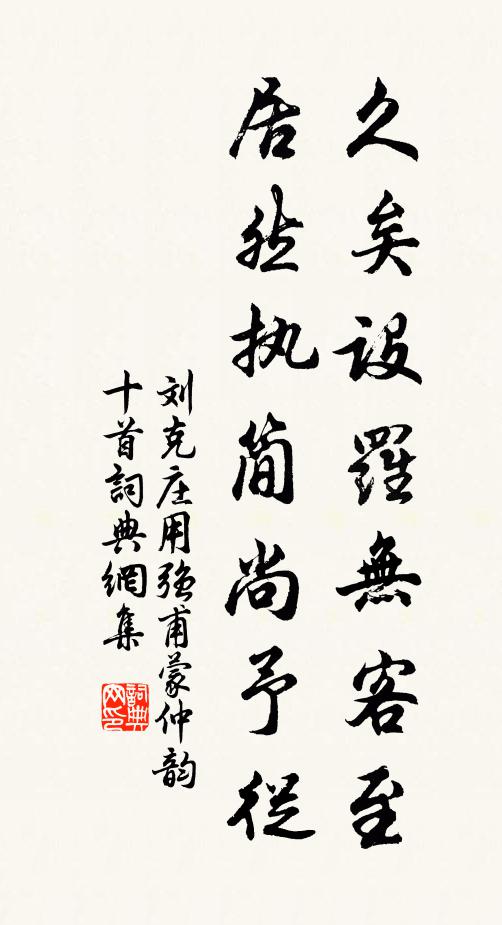 久矣設羅無客至
居然执简尚予從
刘克庄用强甫蒙仲韵
十首詞典網集
詞典网印